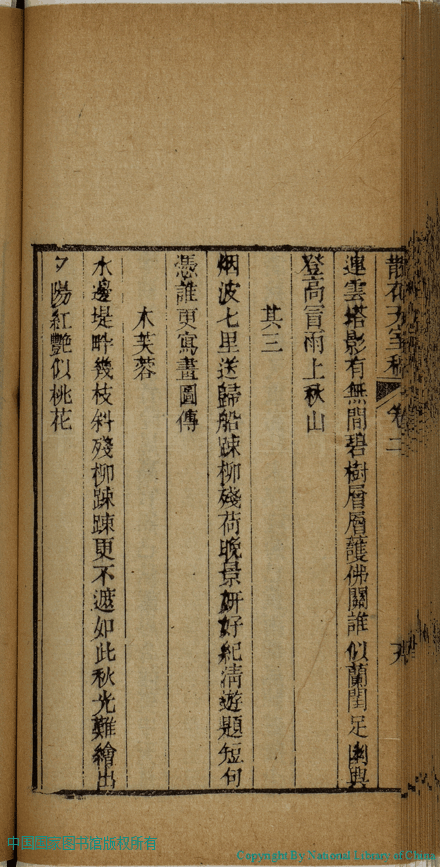 散花天室稿 卷二
連雲塔影有無間碧樹層層護佛關誰似蘭閨足幽興
登高冒雨上秋山
其三
烟波七里送歸船踈柳殘荷晚景妍好紀清遊題短句
憑誰更寫畫圖傳
木芙蓉
水邊堤畔幾枝斜殘柳踈踈更不遮如此秋光難繪出
夕陽紅艷似桃花
中国国家图书馆版权所有
Copyright By National Library of China